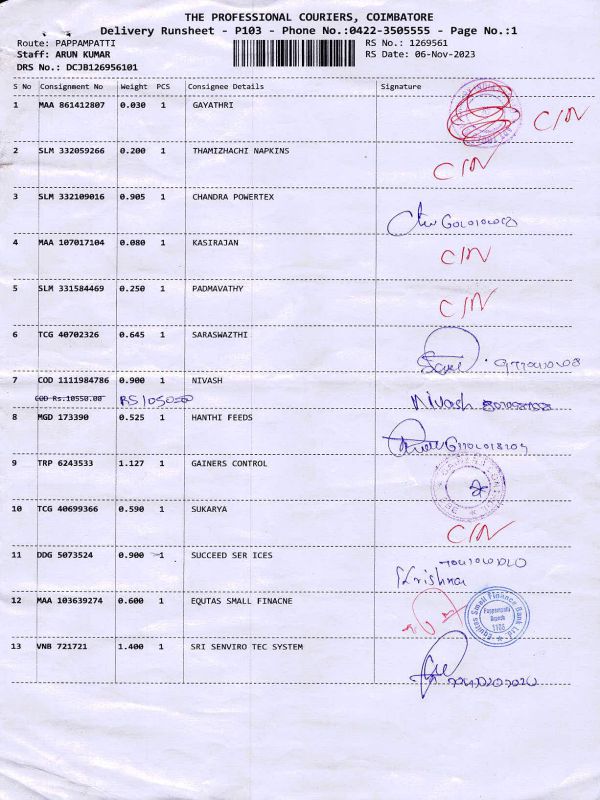 THE PROFESSIONAL COURIERS, COIMBATORE
Delivery Runsheet - P103 - Phone No.:0422-3505555 - Page No.:1
Route: PAPPAMPATTI RS No.: 1269561
Staff: ARUN KUMAR RS Date: 06-Nov-2023
DRS No.: DCJB126956101
S No Consignment No Weight PCS Consignee Details Signature
1 MAA 861412807 0.030 1 GAYATHRI C/N
2 SLM 332059266 0.200 1 THAMIZHACHI NAPKINS C/N
3 SLM 332109016 0.905 1 CHANDRA POWERTEX
4 MAA 107017104 0.080 1 KASIRAJAN C/N
5 SLM 331584469 0.250 1 PADMAVATHY C/N
6 TCG 40702326 0.645 1 SARASWAZTHI
7 COD 1111984786 0.900 1 NIVASH
COD Rs.10550.00 Nivash
8 MGD 173390 0.525 1 HANTHI FEEDS
9 TRP 6243533 1.127 1 GAINERS CONTROL
10 TCG 40699366 0.590 1 SUKARYA C/N
11 DDG 5073524 0.900 1 SUCCEED SER ICES
Krishna
12 MAA 103639274 0.600 1 EQUTAS SMALL FINACNE
Equitas Small Finance Bank Ltd.
Pappampatti
Branch
1106
13 VNB 721721 1.400 1 SRI SENVIRO TEC SYSTEM